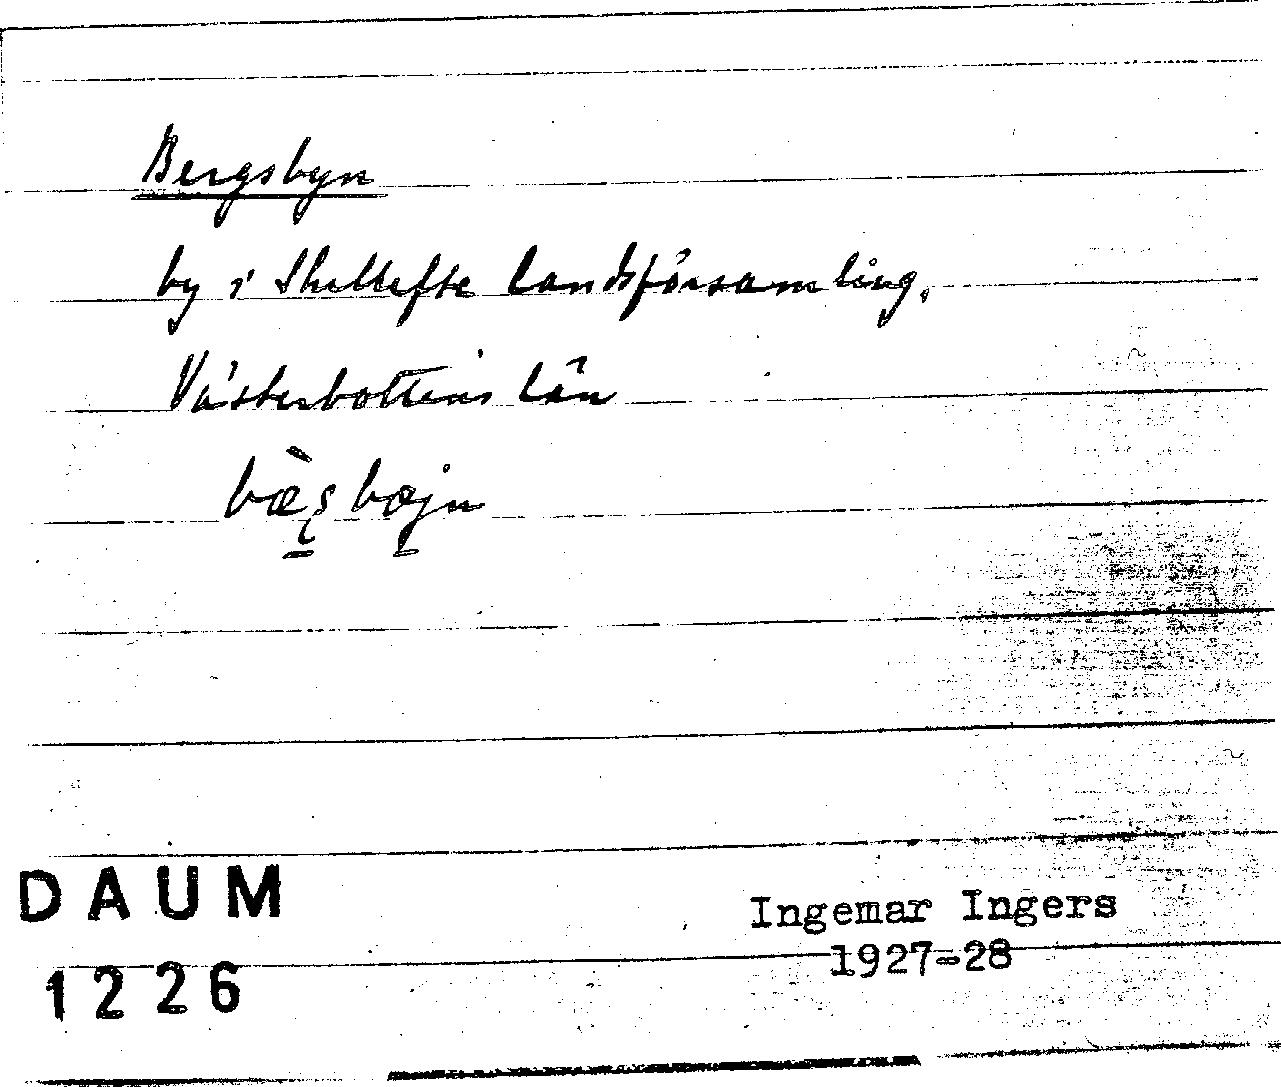 Bergsbyn
by i Skellefte landsförsamling,
Västerbottens län
bæ̀ʂbæjn
DAUM
1226
Ingemar Ingers
1927-28